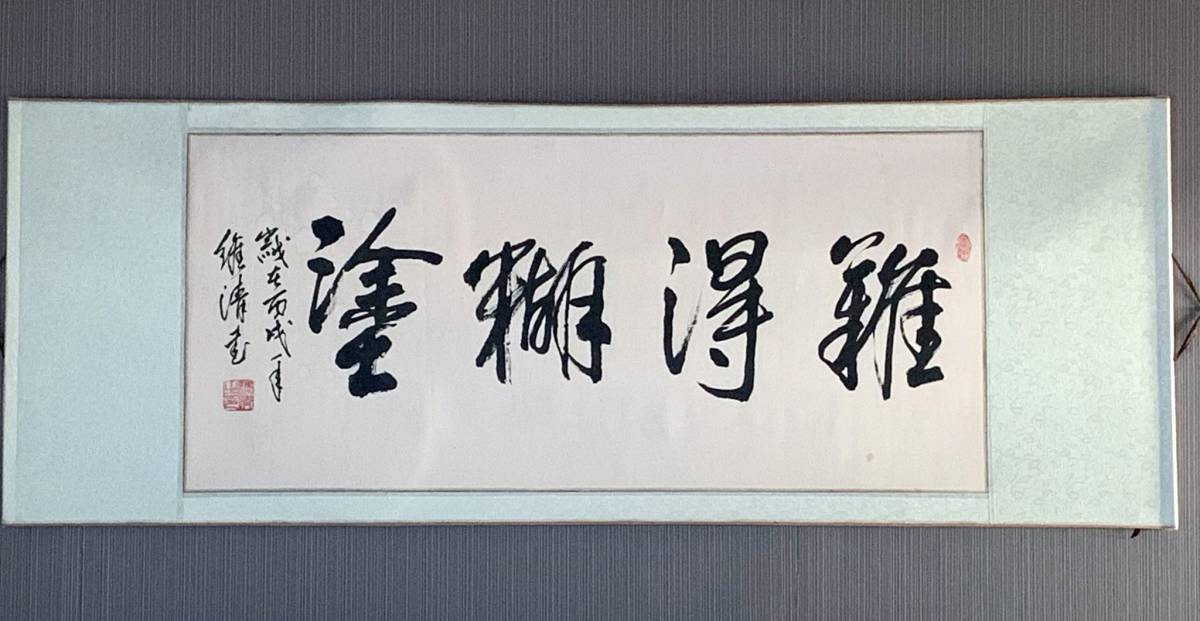 難得糊塗
歲在丙戌年
維清書